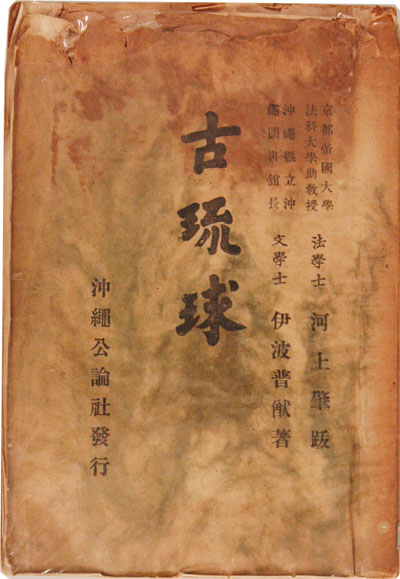 京都帝國大學
法科大學助教授 法學士 河上肇跋
沖繩縣立沖
繩圖書館長 文學士 伊波普猷著
古琉球
沖繩公論社發行